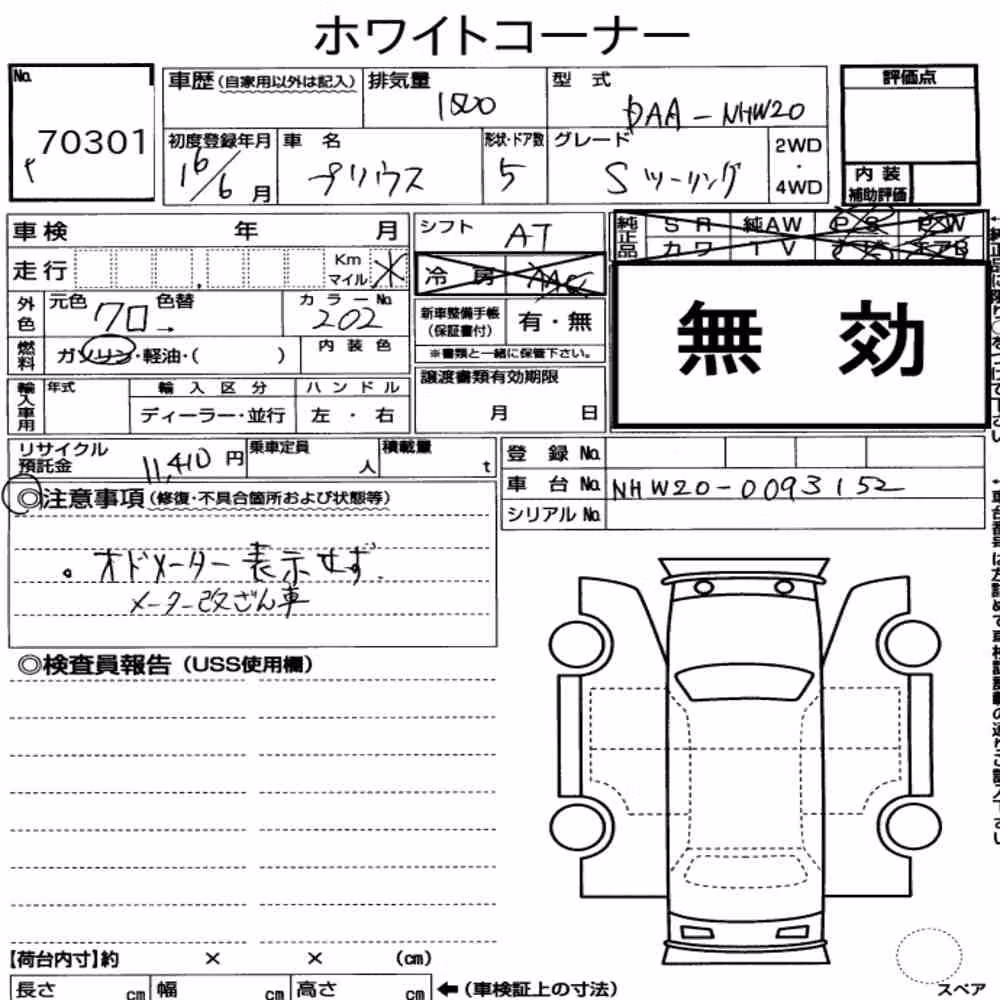 ホワイトコーナー
No. 70301
車歴(自家用以外は記入) 排気量 1500 型式 DAA-NHW20
評価点
初度登録年月 16/6月 車名 プリウス 形状・ドア数 5 グレード Sツーリング 2WD・4WD
内装補助評価
車検 年 月
シフト AT
純正品 SR 純AW PS PW
カワ TV ナビ エアB
走行 Km マイル
冷房 AAC
外色 元色 クロ → 色替 カラーNo. 202
新車整備手帳(保証書付) 有・無
無効
燃料 ガソリン・軽油・( ) 内装色
※書類と一緒に保管下さい。
輸入車用 年式 輸入区分 ハンドル
ディーラー・並行 左・右
譲渡書類有効期限
月 日
リサイクル預託金 11,410円 乗車定員 人 積載量 t
登録No.
車台No. NHW20-0093152
シリアルNo.
◎注意事項(修復・不具合箇所および状態等)
。オドメーター表示せず.
メーター改ざん車
◎検査員報告(USS使用欄)
【荷台内寸】約 × × (cm)
長さ cm 幅 cm 高さ cm ←(車検証上の寸法)
スペア